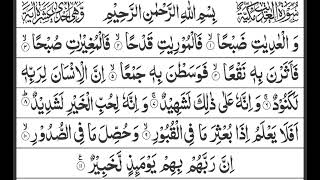 سُوْرَةُ الْعٰدِيٰتِ مَكِّيَّةٌ بِسْمِ اللّٰهِ الرَّحْمٰنِ الرَّحِيْمِ
وَ الْعٰدِيٰتِ ضَبْحًا ۙ۱ فَالْمُوْرِيٰتِ قَدْحًا ۙ۲ فَالْمُغِيْرٰتِ صُبْحًا ۙ۳
فَاَثَرْنَ بِهٖ نَقْعًا ۙ۴ فَوَسَطْنَ بِهٖ جَمْعًا ۙ۵ اِنَّ الْاِنْسَانَ لِرَبِّهٖ
لَكَنُوْدٌ ۚ۶ وَ اِنَّهٗ عَلٰى ذٰلِكَ لَشَهِيْدٌ ۚ۷ وَ اِنَّهٗ لِحُبِّ الْخَيْرِ لَشَدِيْدٌ ؕ۸
اَفَلَا يَعْلَمُ اِذَا بُعْثِرَ مَا فِى الْقُبُوْرِ ۙ۹ وَ حُصِّلَ مَا فِى الصُّدُوْرِ ۙ۱۰
اِنَّ رَبَّهُمْ بِهِمْ يَوْمَىِٕذٍ لَّخَبِيْرٌ ۠۱۱